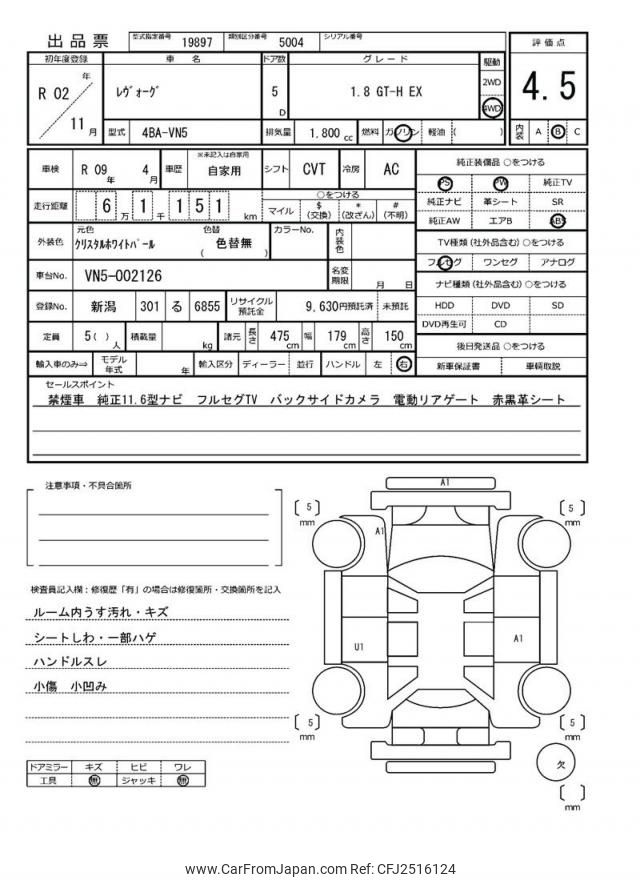 出品票 型式指定番号 19897 類別区分番号 5004 シリアル番号
初年度登録 車名 ドア数 グレード 駆動 評価点
R 02 年 11 月 レヴォーグ 5 D 1.8 GT-H EX 2WD 4WD 4.5
型式 4BA-VN5 排気量 1.800 cc 燃料 ガソリン 軽油 ( ) 内装 A B C
車検 R 09 年 4 月 車歴 ※未記入は自家用 自家用 シフト CVT 冷房 AC
走行距離 6 万 1 千 1 5 1 km ○をつける マイル $ (交換) * (改ざん) # (不明)
外装色 元色 クリスタルホワイトパール 色替 ( 色替無 ) カラーNo. 内装色
車台No. VN5-002126 名変期限 月 日
登録No. 新潟 301 る 6855 リサイクル預託金 9,630円預託済 未預託
定員 5 ( ) 人 積載量 kg 諸元 長さ 475 cm 幅 179 cm 高さ 150 cm
輸入車のみ⇒ モデル年式 年 輸入区分 ディーラー 並行 ハンドル 左 右
純正装備品 ○をつける
PS PW 純正TV
純正ナビ 革シート SR
純正AW エアB ABS
TV種類 (社外品含む) ○をつける
フルセグ ワンセグ アナログ
ナビ種類 (社外品含む) ○をつける
HDD DVD SD
DVD再生可 CD
後日発送品 ○をつける
新車保証書 車輌取説
セールスポイント
禁煙車 純正11.6型ナビ フルセグTV バックサイドカメラ 電動リアゲート 赤黒革シート
注意事項・不具合箇所
検査員記入欄：修復歴「有」の場合は修復箇所・交換箇所を記入
ルーム内うす汚れ・キズ
シートしわ・一部ハゲ
ハンドルスレ
小傷 小凹み
ドアミラー キズ ヒビ ワレ
工具 無 ジャッキ 無
A1
[ 5 ] mm
[ 5 ] mm
A1
U1
A1
[ 5 ] mm
[ 5 ] mm
欠
[ ] mm
www.CarFromJapan.com Ref: CFJ2516124